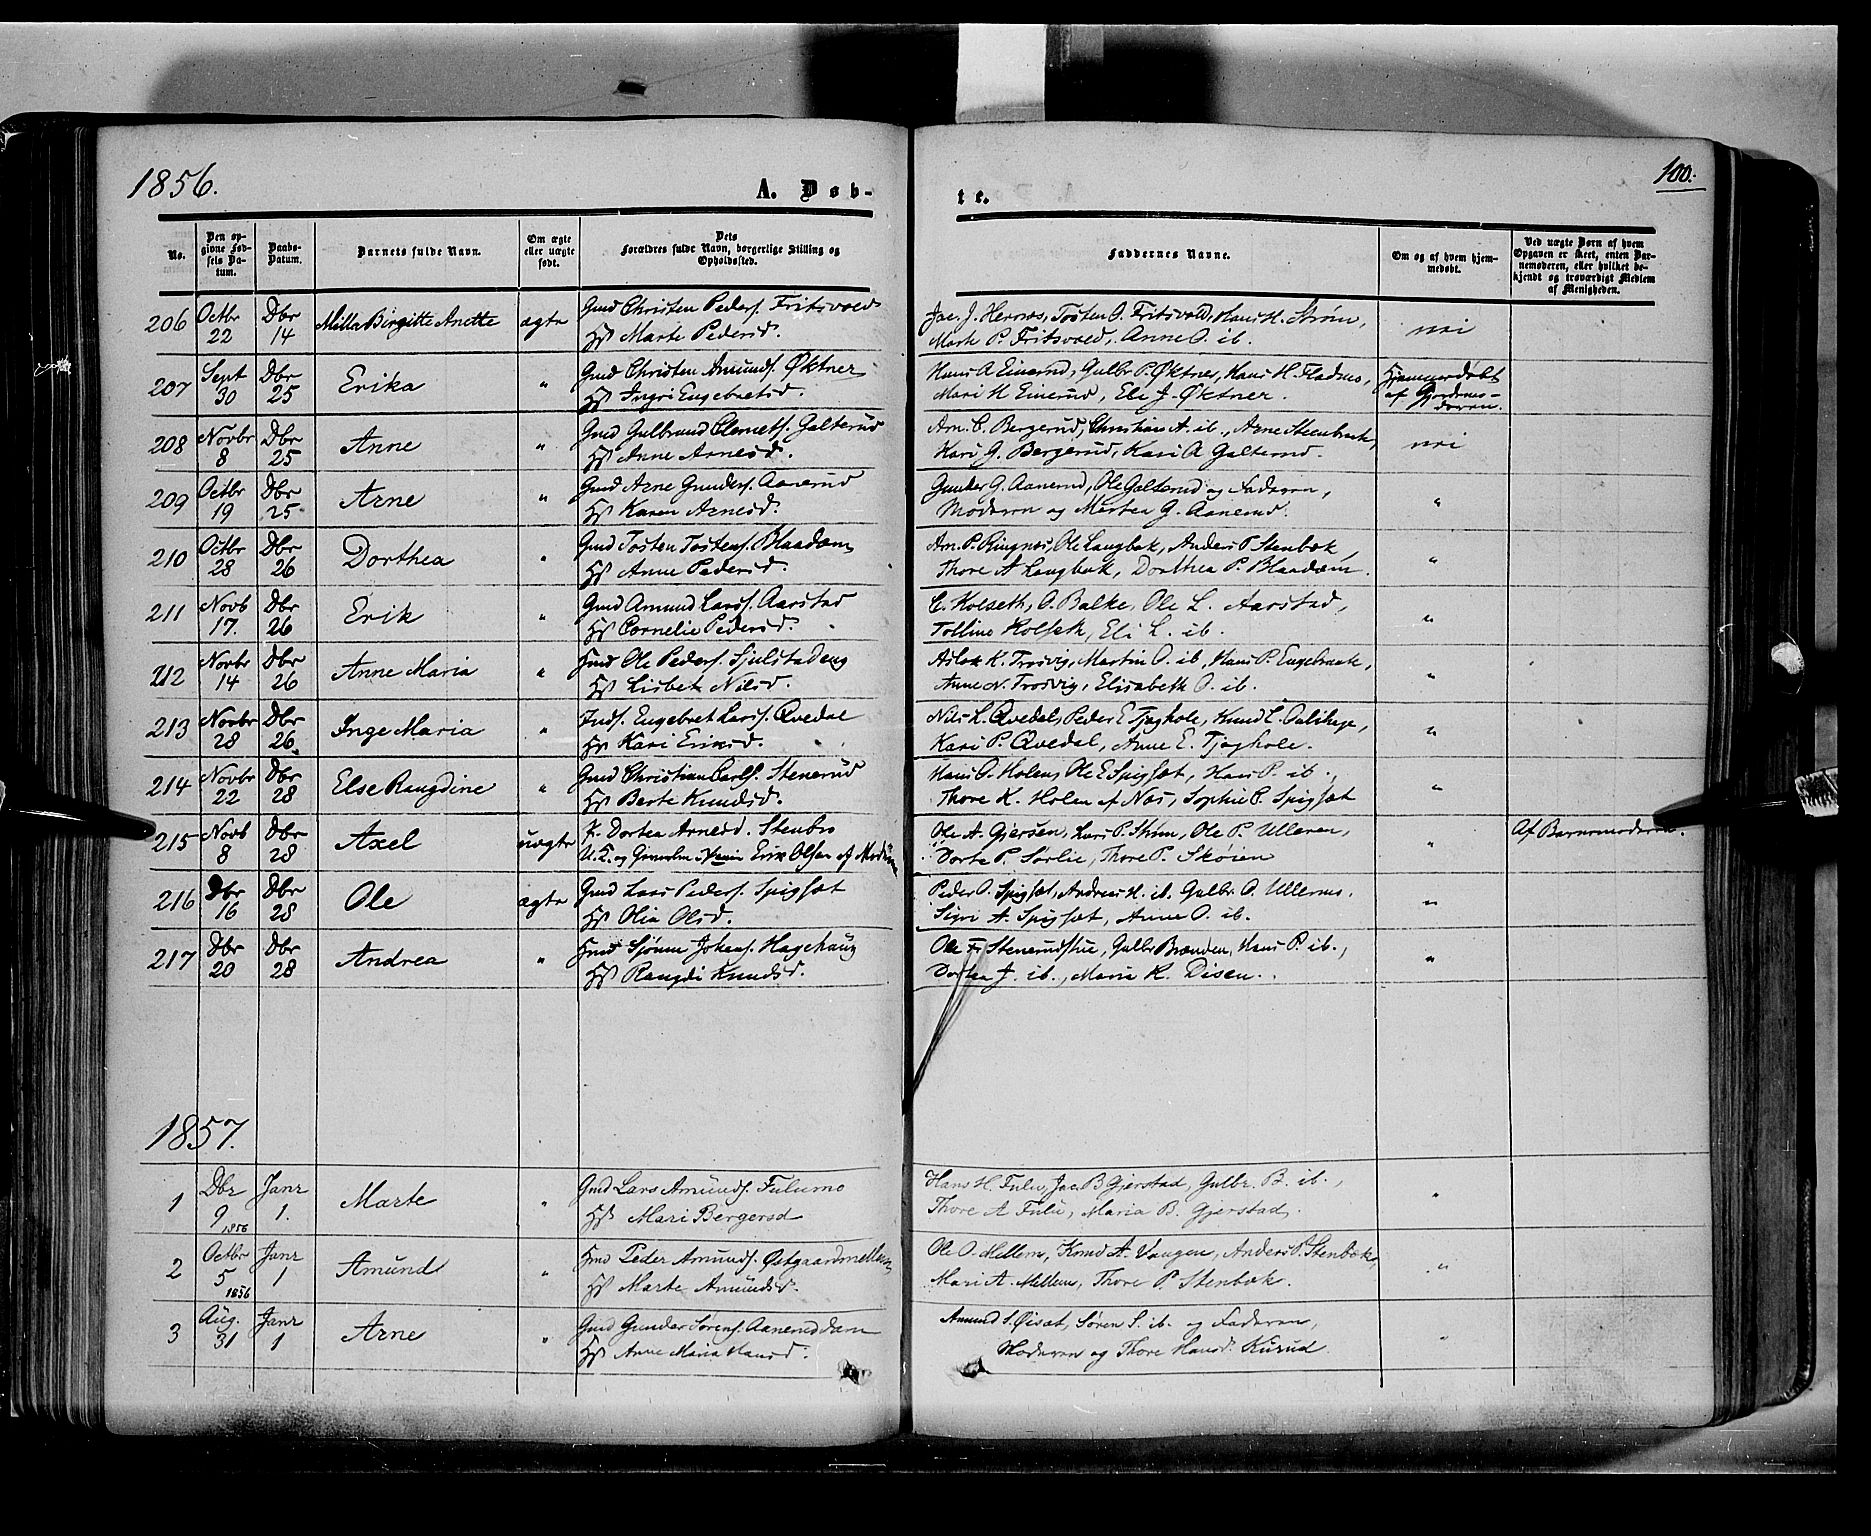 1856.
A. Døb-
te.
100.
No.
Den opgivne Fødsels Datum.
Daabs-Datum.
Barnets fulde Navn.
Om ægte eller uægte født.
Dets Forældres fulde Navn, borgerlige Stilling og Opholdssted.
Faddernes Navne.
Om og af hvem hjemmedøbt.
Ved uægte Børn af hvem Opgaven er skeet, enten Barnemoderen, eller hvilket bekjendt og troværdigt Medlem af Menigheden.
206 Octbr 22 Dbr 14 Milla Birgitte Anette ægte Gmd Christen Peders. Fritsvold
Hst Marte Pedersd.
Jac. J. Hernæs, Tosten O. Fritsvold, Hans H. Strøm,
Marte P. Fritsvold, Anne O. ib. nei
207 Sept 30 Dbr 25 Erika " Gmd Christen Amunds. Øktner
Hst Ingri Engebretsd.
Hans A Einerud, Gulbr. P. Øktner, Hans H. Fladnes,
Mari H Einerud, Eli J. Øktner.
Hjemmedøbt
af Gjordmo-
deren.
208 Novbr 8 Dbr 25 Anne " Gmd Gulbrand Clemets. Galterud
Hst Anne Arnesd.
Arn. C. Bergerud, Christian A. ib., Arne Steenbæk,
Kari G. Bergerud, Kari A Galterud. nei
209 Octbr 19 Dbr 25 Arne " Gmd Arne Gunders. Aanerud
Hst Karen Arnesd.
Gunder G. Aanerud, Ole Galterud og Faderen,
Moderen og Martea G. Aanerud. "
210 Octbr 28 Dbr 26 Dorthea " Gmd Tosten Tostens. Blaadam
Hst Anne Pedersd.
Arn. P. Ringnæs, Ole Langbak, Anders P Stenbæk,
Thore A Langbak, Dorthea P. Blaadam. "
211 Novb 17. Dbr 26 Erik " Gmd Amund Lars. Aarstad
Hst Cornelie Pedersd.
C. Kolseth, O. Balke, Ole L. Aarstad,
Tolline Kolseth, Eli L. ib. "
212 Novbr 14 Dbr 26 Anne Maria " Hmd Ole Peders. Sjulstadeng
Hst Lisbet Nilsd.
Aslak K. Trosvig, Martin O. ib, Hans P. Engebraak,
Anne N. Trosvig, Elisabeth O. ib. "
213 Novbr 28 Dbr 26 Inge Maria " Inds. Engebret Lars. Qvedal
Hst Kari Eriksd.
Nils L. Qvedal, Peder E Tjaghole, Knud L.
Kari P. Qvedal, Anne E. Tjaghole. "
214 Novbr 22 Dbr 28 Else Rangdine " Gmd Christian Carls. Stenerud
Hst Berte Knudsd.
Hans O. Holen, Ole E Spigset, Hans P. ib.,
Thore K. Holen af Næs, Sophie C. Spigset "
215 Novb 8 Dbr 28 Axel uægte P. Dortea Arnesd. Stenbro
U. K. og Erik Olsen af Modum
Ole A. Gjersøen, Lars P. Strøm, Ole P. Ulleren,
Dorte P. Sørlie, Thore P. Skøien "
Af Barnemoderen.
216 Dbr 16 Dbr 28 Ole ægte Gmd Lars Peders. Spigset
Hst Olia Olsd.
Peder O. Spigset, Andreas H. ib. Gulbr. O. Ullernes.
Sigri A. Spigset, Anne O. ib. "
217 Dbr 20 Dbr 28 Andrea " Hmd Sjønne Johans. Hagehaug
Hst Rangdi Knudsd.
Ole Stenerudstue, Gulbr. Brænden, Hans P. ib.,
Dortea J. ib., Maria K. Disen. "
1857.
1 Dbr 9 1856 Janr 1. Marte " Gmd Lars Amunds. Fulumo
Hst Mari Bergersd
Hans H. Fulu, Jac. B Gjerstad, Gulbr. B. ib.,
Thore A Fulu, Maria B. Gjerstad. "
2 Octbr 5 1856 Janr 1 Amund " Hmd Peder Amunds. Østgaardmellem
Hst Marte Amundsd.
Ole O. Mellem, Knud A. Vangen, Anders P. Stenbæk,
Mari A. Mellem, Thore P. Stenbæk. "
3 Aug. 31 Janr 1 Arne " Gmd Gunder Sørens. Aaneruddam
Hst Anne Maria Hansd.
Amund S. Øisæt, Søren S. ib. og Faderen,
Moderen og Thore Hansd. Kurud "